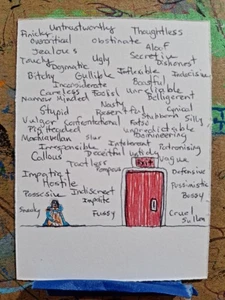 Untrustworthy Thoughtless
Finicky
Quizotical Obstinate Aloof
Jealous Secretive
Touchy Ugly Dishonest
Dogmatic Inflexible Indecisive
Bitchy Gullible Boastful
Inconsiderate Unreliable
Careless Foolish Belligerent
Narrow Minded Nasty Cynical
Stupid Resentful Stubborn Silly
Vulgar Confrontational False
Pig Headed Unpredictable
Machiavellian Domineering
Irresponsible Intolerant Patronising
Callous Deceitful Untidy
Tactless EXIT Vague
Impatient Pompous Defensive
Hostile Pessimistic
Possesive Indiscreet Bossy
Impolite
Sneaky Fussy Cruel
Sullen